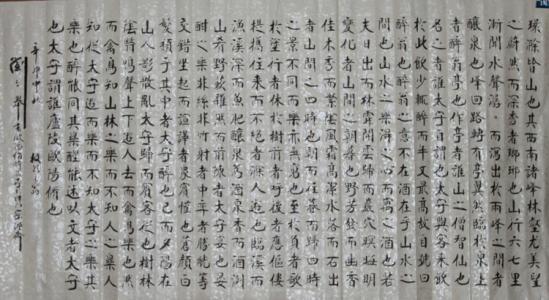 環滁皆山也其西南諸峰林壑尤美望
之蔚然而深秀者瑯琊也山行六七里
漸聞水聲潺潺而瀉出於兩峰之間者
釀泉也峰回路轉有亭翼然臨於泉上
者醉翁亭也作亭者誰山之僧智仙也
名之者誰太守自謂也太守與客來飲
於此飲少輒醉而年又最高故自號曰
醉翁也醉翁之意不在酒在乎山水之
間也山水之樂得之心而寓之酒也若
夫日出而林霏開雲歸而巖穴暝晦明
變化者山間之朝暮也野芳發而幽香
佳木秀而繁陰風霜高潔水落而石出
者山間之四時也朝而往暮而歸四時
之景不同而樂亦無窮也至於負者歌
於塗行者休於樹前者呼後者應傴僂
提攜往來而不絕者滁人遊也臨溪而
漁溪深而魚肥釀泉為酒泉香而酒洌
山肴野蔌雜然而前陳者太守宴也宴
酣之樂非絲非竹射者中弈者勝觥籌
交錯坐起而諠譁者眾賓懽也蒼顏白
髮頹乎其中者太守醉也已而夕陽在
山人影散亂太守歸而賓客從也樹林
陰翳鳴聲上下遊人去而禽鳥樂也然
而禽鳥知山林之樂而不知人之樂人
知從太守遊而樂而不知太守之樂其
樂也醉能同其樂醒能述以文者太守
也太守謂誰廬陵歐陽修也
辛卯中秋